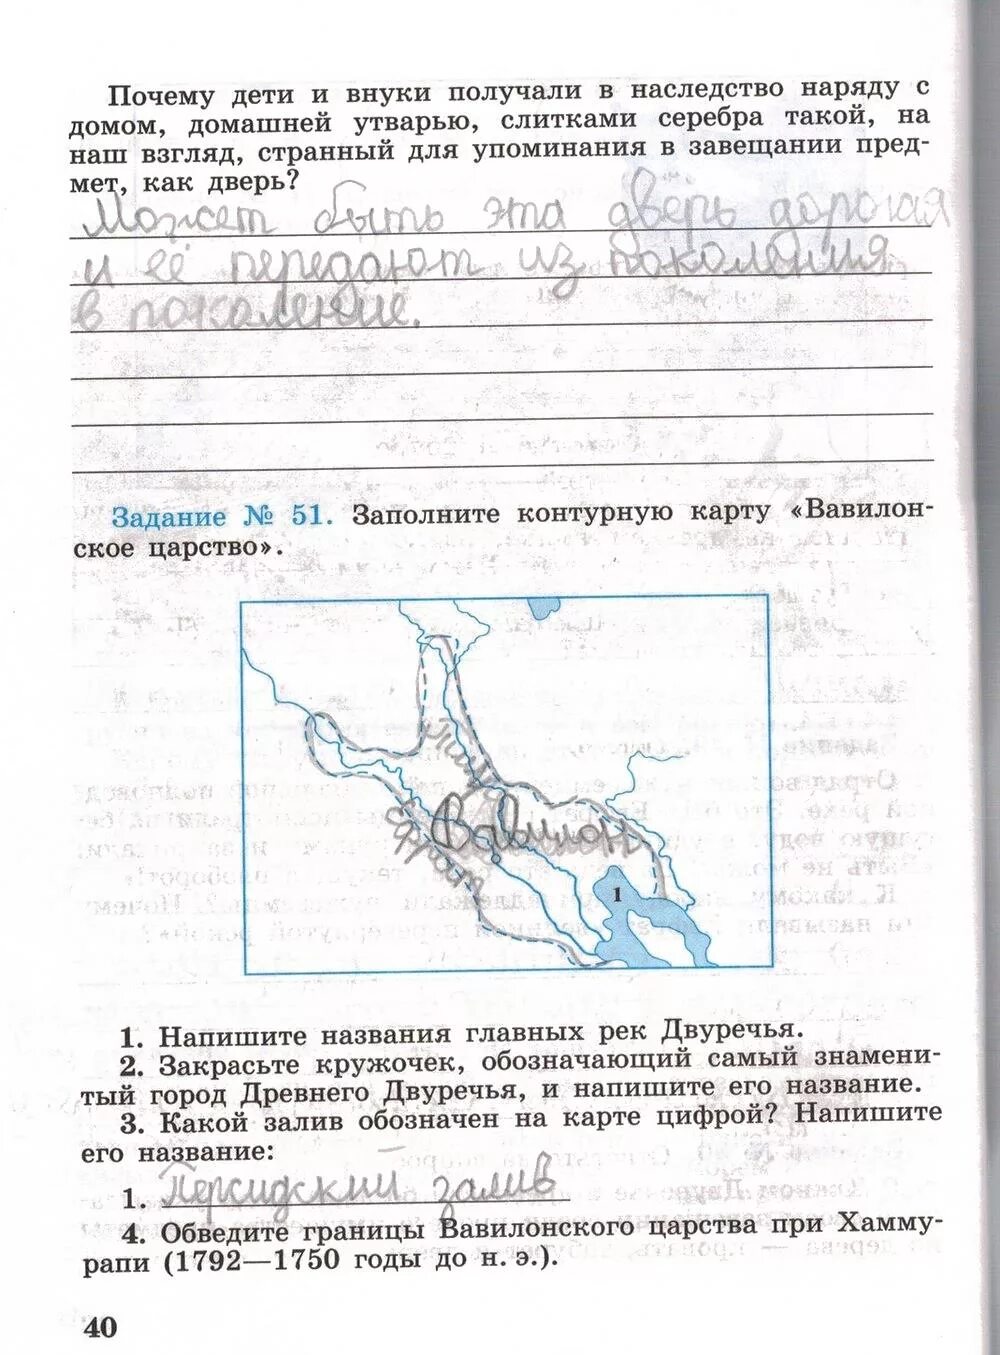 Почему дети и внуки получали в наследство наряду с
домом, домашней утварью, слитками серебра такой, на
наш взгляд, странный для упоминания в завещании пред-
мет, как дверь?
Может быть эта дверь дорогая
и её передают из поколения
в поколение.
Задание № 51. Заполните контурную карту «Вавилон-
ское царство».
Тигр
Вавилон
Евфрат
1
1. Напишите названия главных рек Двуречья.
2. Закрасьте кружочек, обозначающий самый знамени-
тый город Древнего Двуречья, и напишите его название.
3. Какой залив обозначен на карте цифрой? Напишите
его название:
1. Персидский залив
4. Обведите границы Вавилонского царства при Хамму-
рапи (1792—1750 годы до н. э.).
40